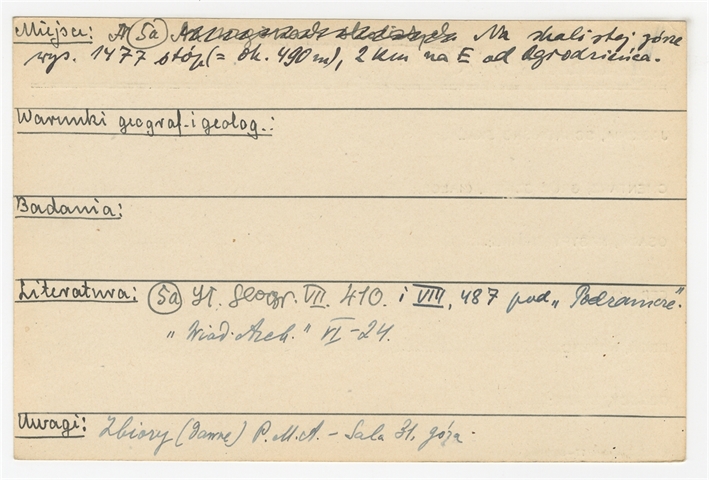 Miejsce: (5a) Na skalistej górze
wys. 1477 stóp (= ok. 490 m), 2 km na E od Ogrodzieńca.
Warunki geograf. i geolog.:
Badania:
Literatura: (5a) Sł. Geogr. VII. 410. i VIII, 487 pod „Podzamcze".
„Wiad. Arch." VI-24.
Uwagi: Zbiory (dawne) P.M.A. - Sala 31. góra